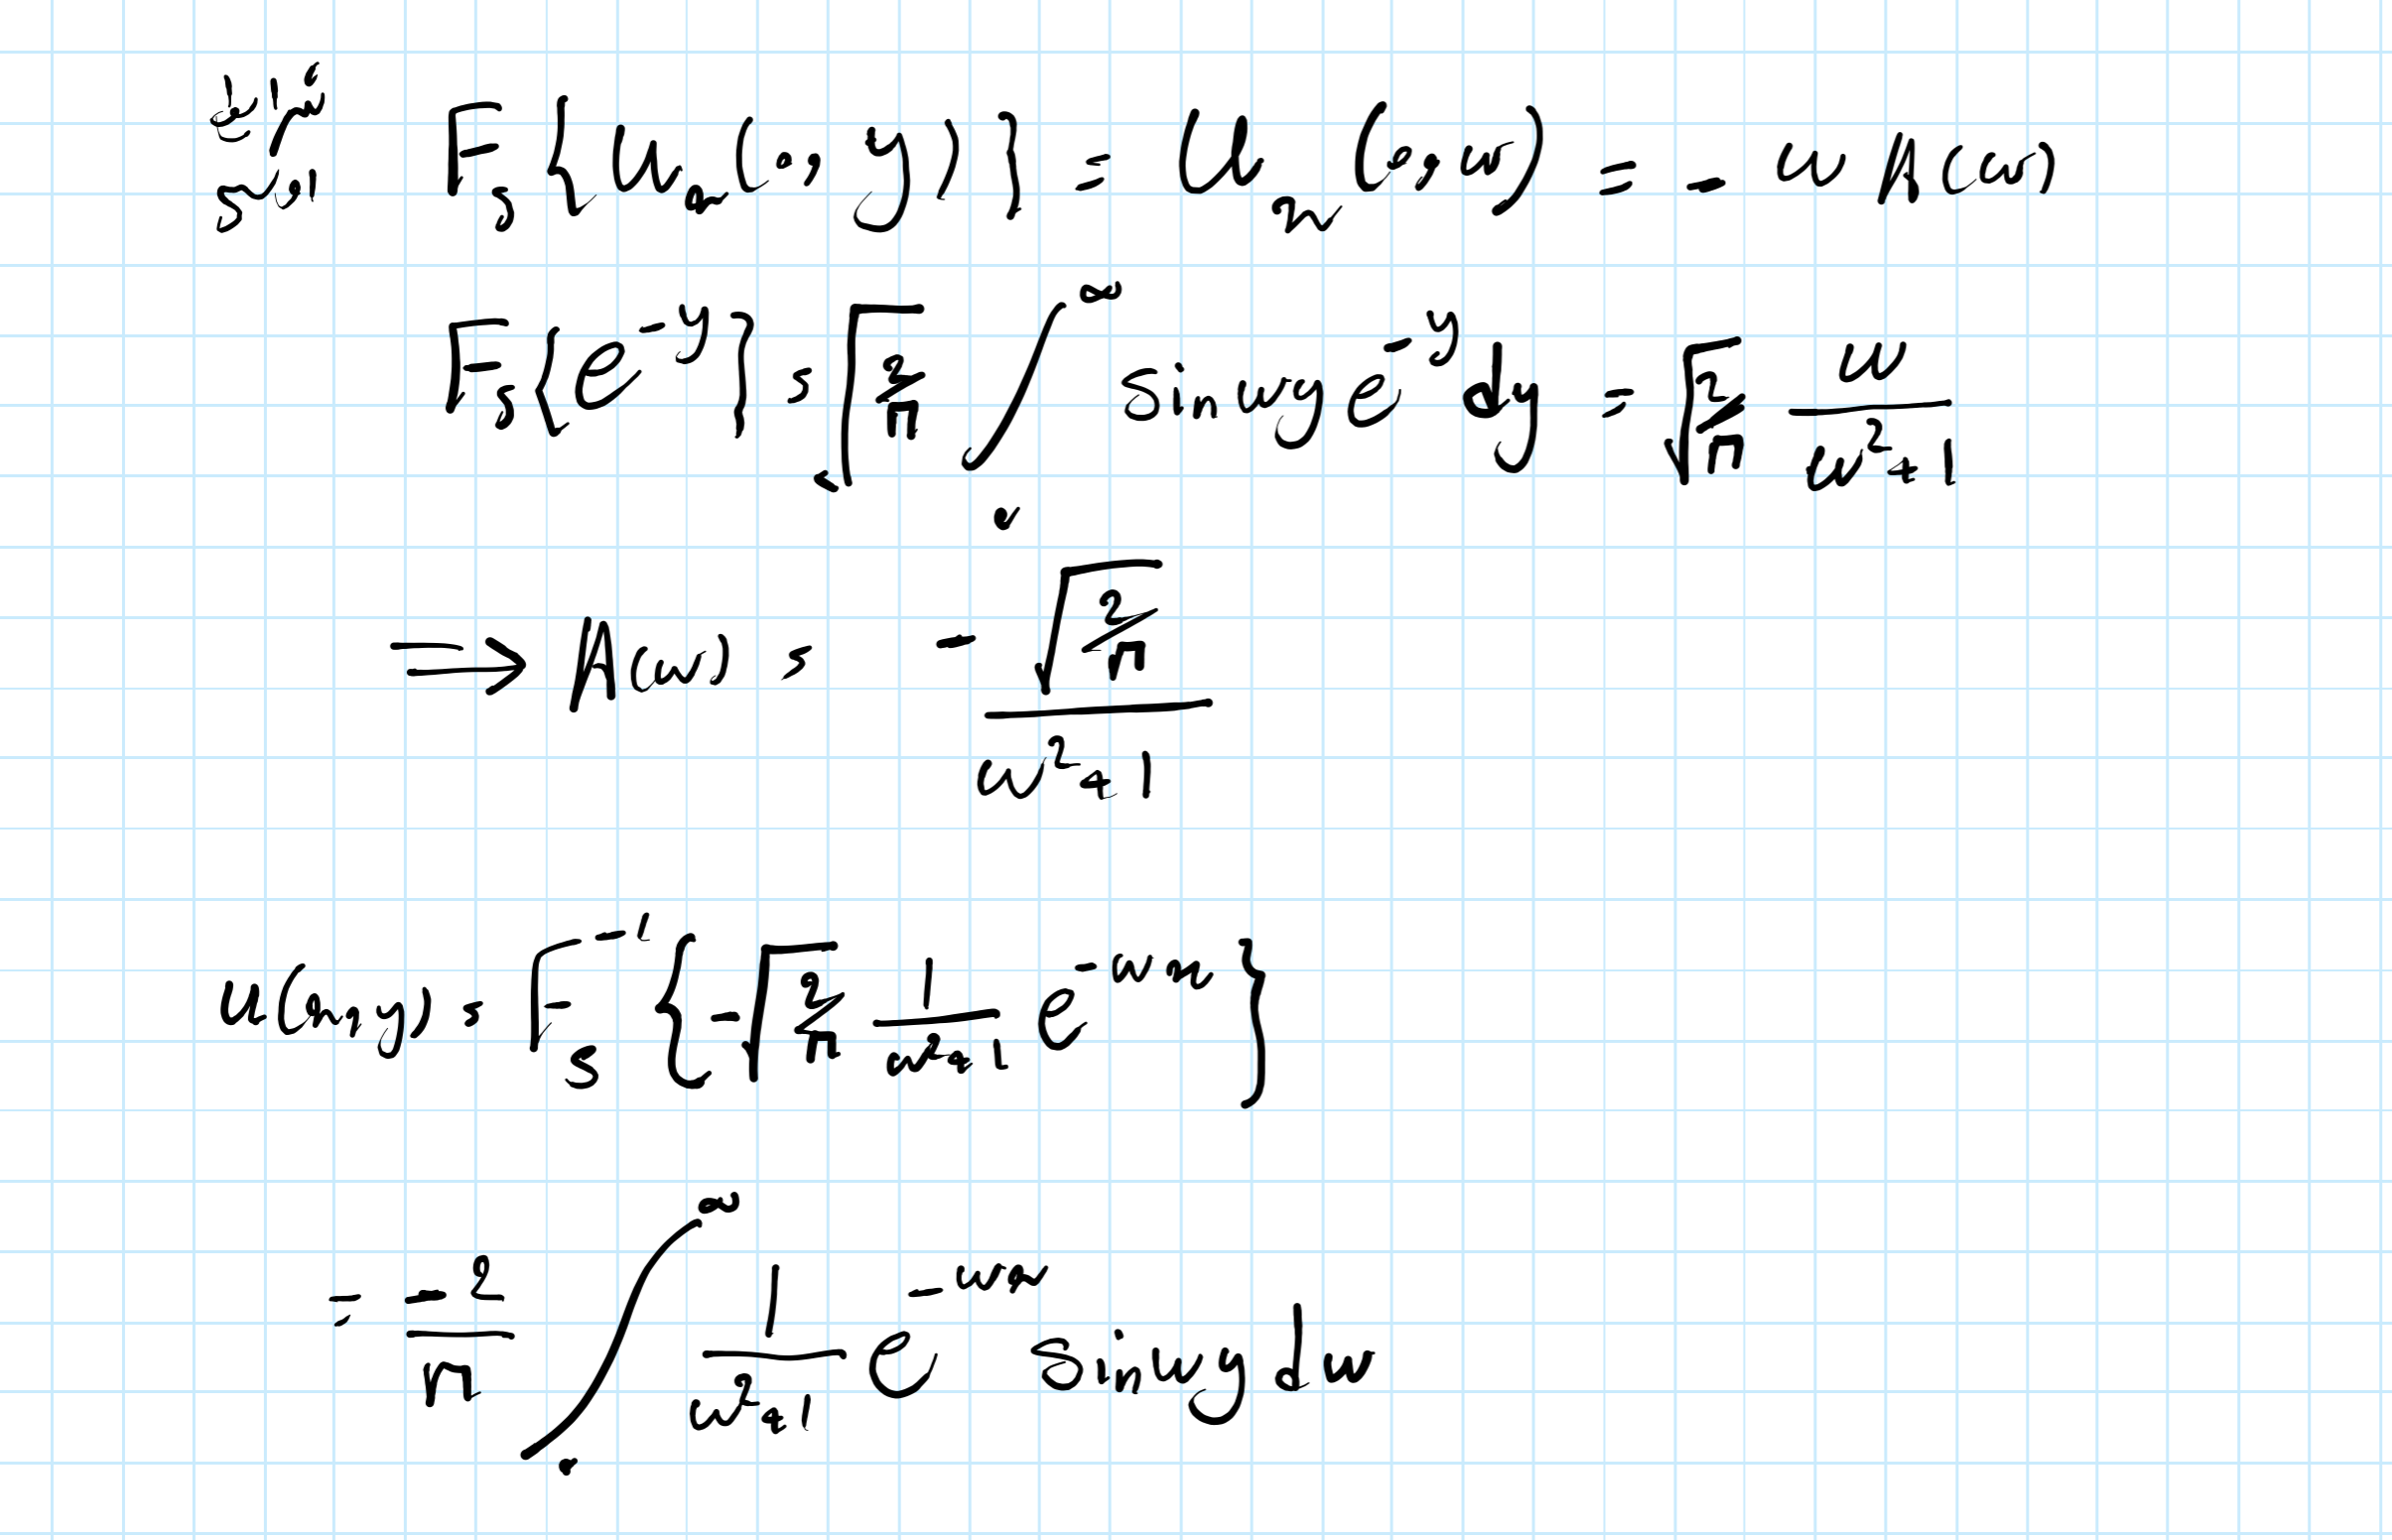 شرایط مرزی F_s{u_x(0, y)} = U_x(0, w) = - w A(w)
F_s{e^{-y}} = √(2/π) ∫_0^∞ sin wy e^{-y} dy = √(2/π) w/(w²+1)
⟹ A(w) = - √(2/π) / (w²+1)
u(x, y) = F_s^{-1} { -√(2/π) 1/(w²+1) e^{-wx} }
= -2/π ∫_0^∞ 1/(w²+1) e^{-wx} sin wy dw